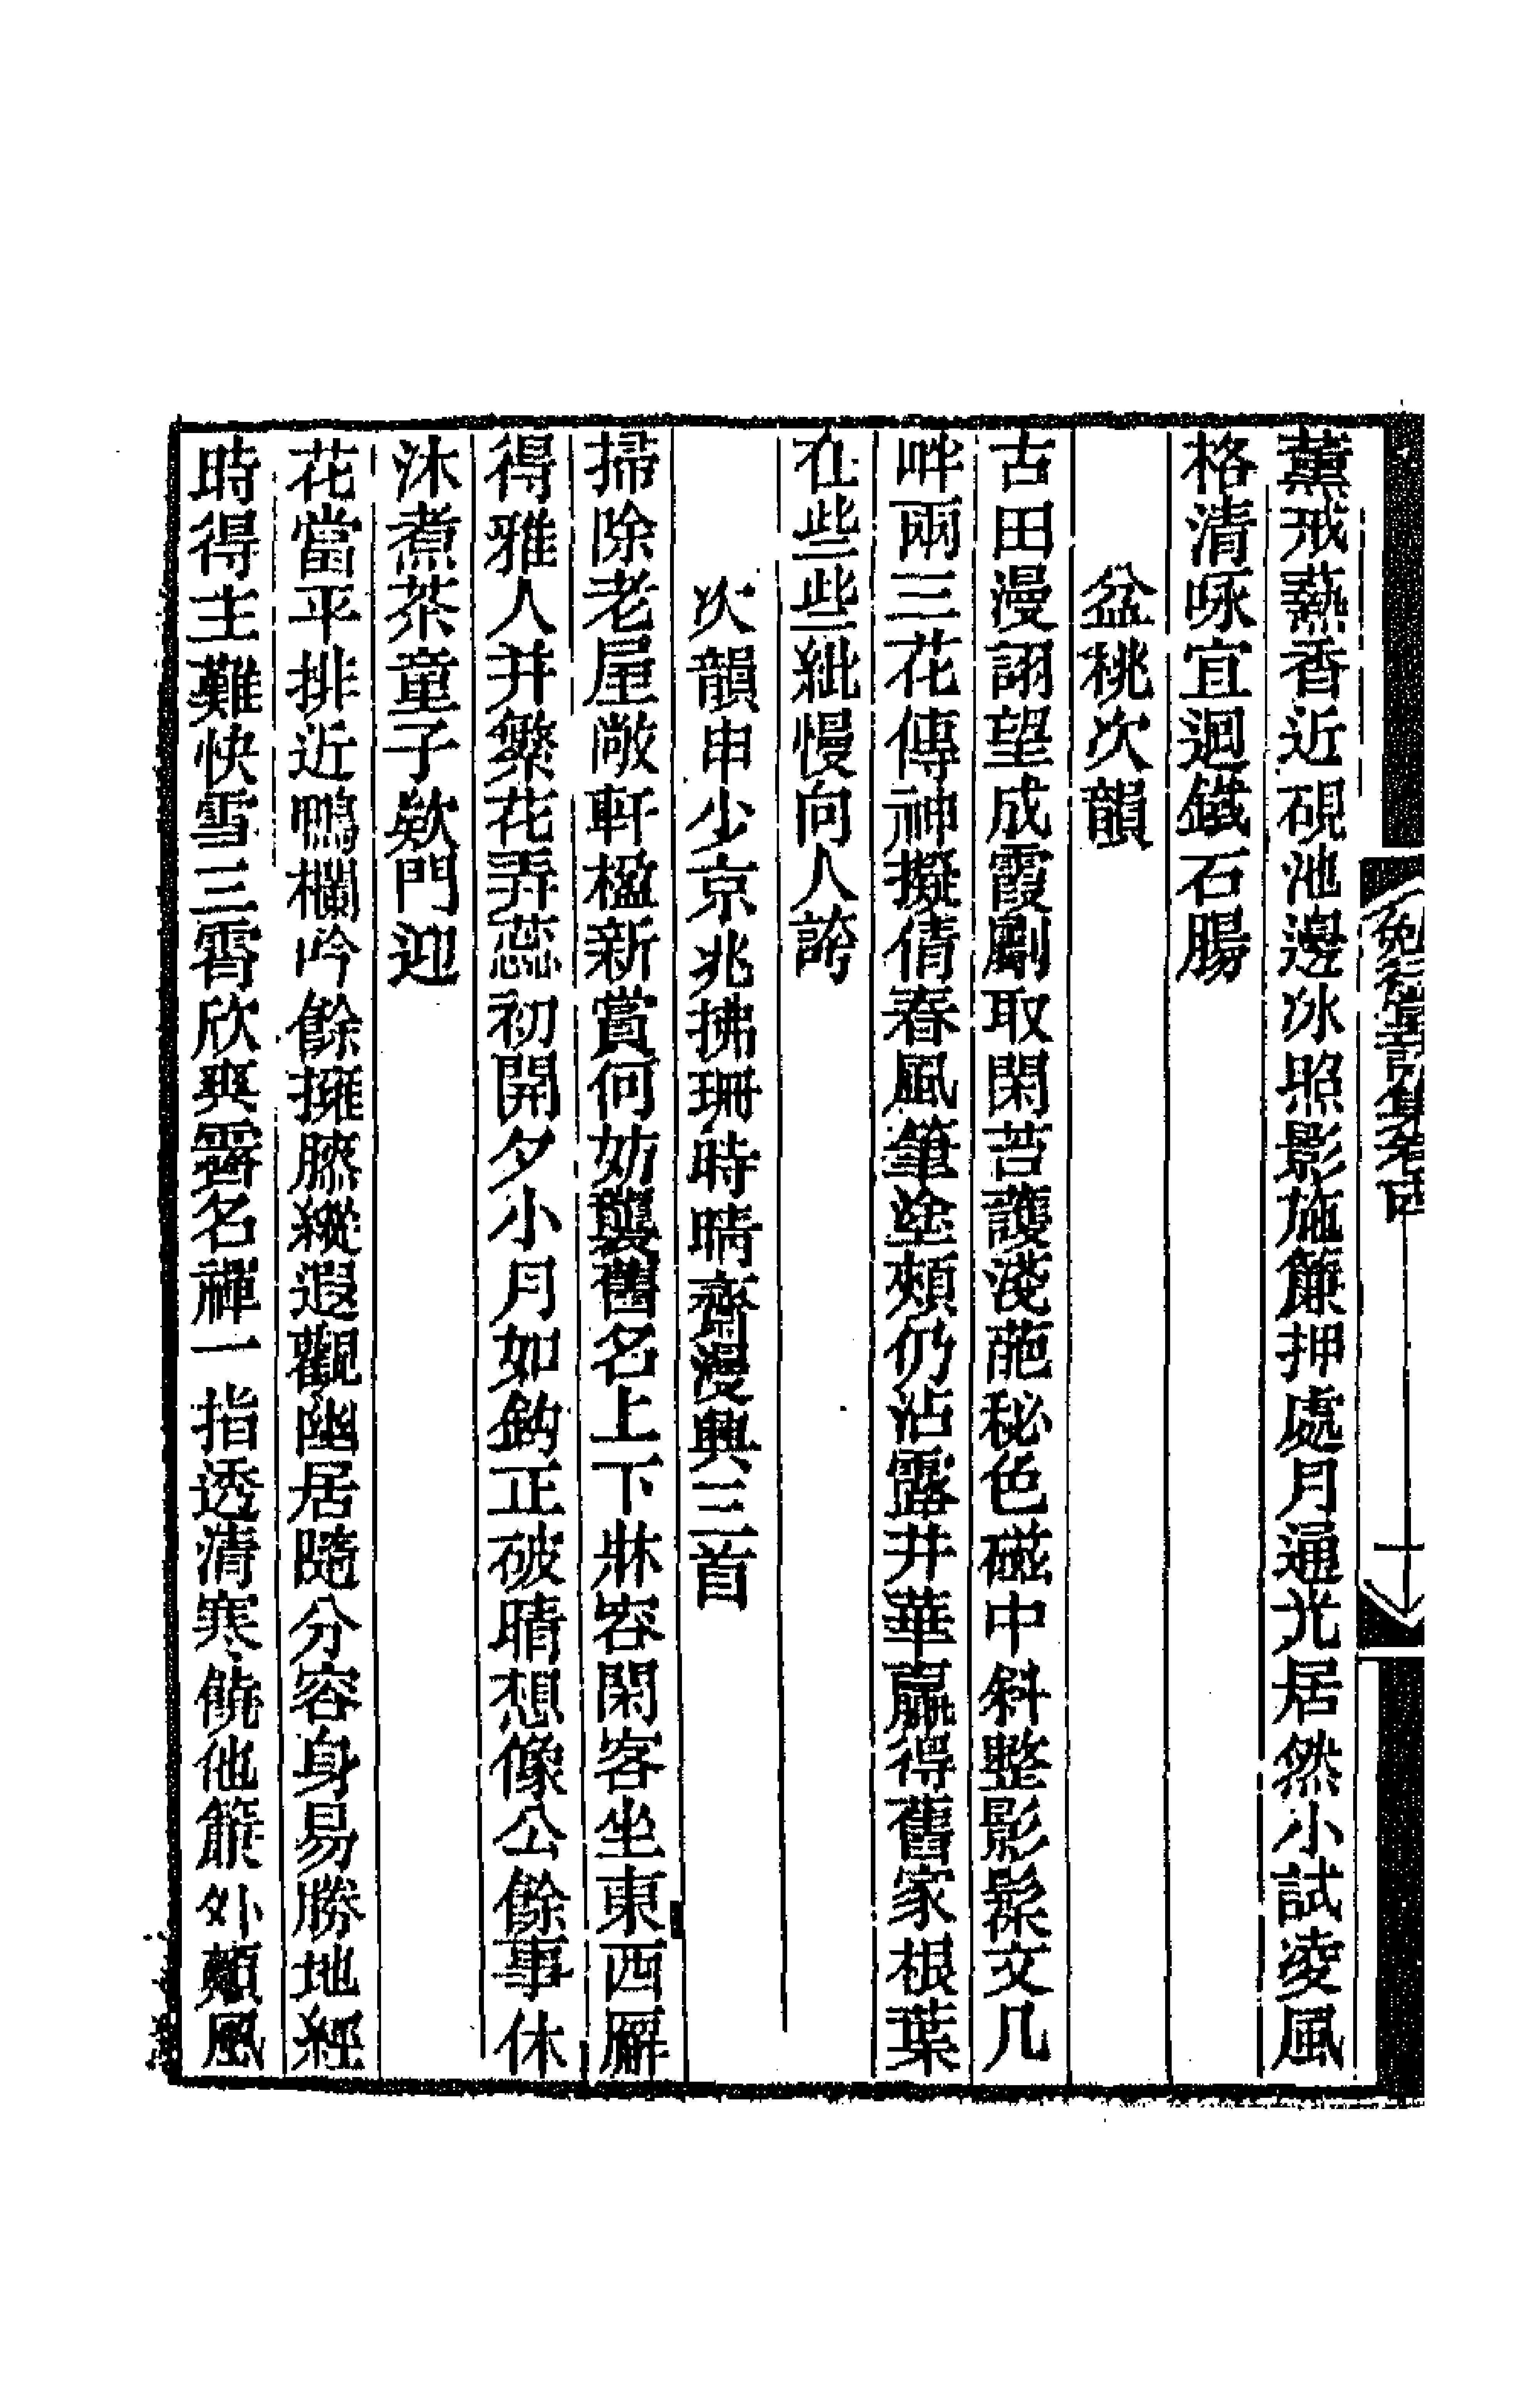 薰戒爇香近硯池邊冰照影施簾押處月通光居然小試凌風
格清咏宜迴鐵石腸
盆桃次韻
古田漫詡望成霞劚取閑苔護淺葩秘色磁中斜整影髹文几
畔兩三花傳神擬倩春風筆塗頰仍沾露井華贏得舊家根葉
在些些紕慢向人誇
次韻申少京兆拂珊時晴齋漫興三首
掃除老屋敞軒楹新賞何妨襲舊名上下牀容閑客坐東西廨
得雅人并繁花弄蕊初開夕小月如鉤正破晴想像公餘事休
沐煮茶童子欵門迎
花當平排近鴨欄吟餘擁膝縱遐觀幽居隨分容身易勝地經
時得主難快雪三霄欣與署名禪一指透清寒饒他簾外顛風